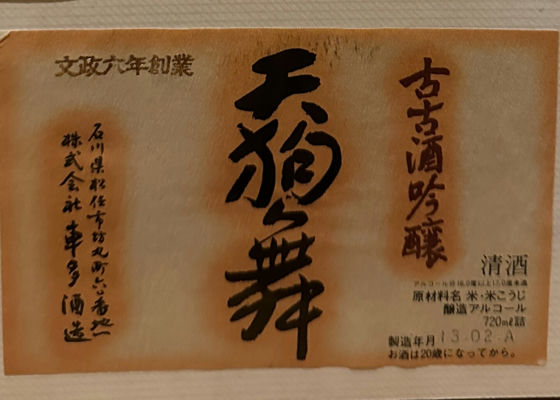 古古酒吟醸
天狗舞
文政六年創業
石川県松任市坊丸町六〇番地一
株式会社車多酒造
清酒
アルコール分16.0度以上17.0度未満
原材料名 米・米こうじ
醸造アルコール
720ml詰
製造年月 13.02.A
お酒は20歳になってから。